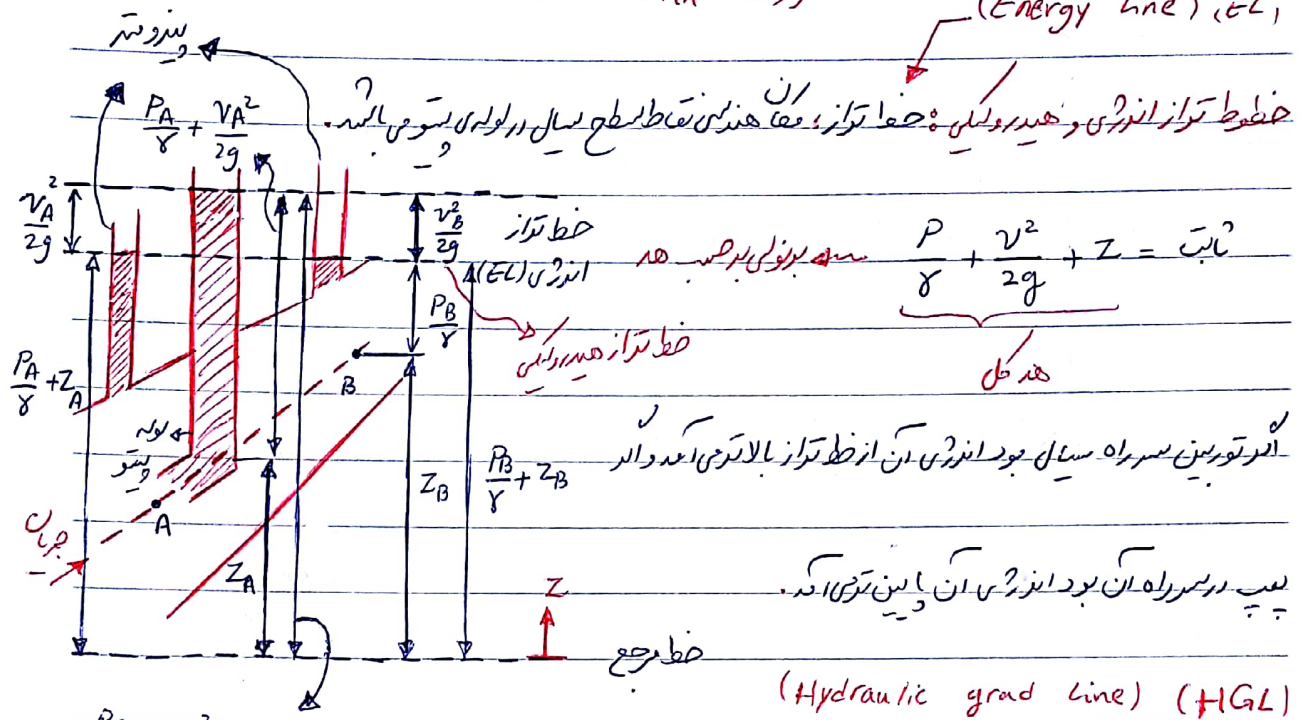 (Energy Line) (EL)
پیزومتر
خطوط تراز انرژی و هیدرولیکی : خط تراز؛ مکان هندسی نقاط سطح سیال در لوله‌ی پیتو می باشد.
P_A/γ + v_A²/2g
v_A²/2g
v_B²/2g
خط تراز
انرژی (EL)
P/γ + v²/2g + Z = ثابت
برنولی برحسب هد
هد کل
P_B/γ
خط تراز هیدرولیکی
P_A/γ + Z_A
B
لوله
پیتو
A
Z_B
P_B/γ + Z_B
اگر توربین سر راه سیال بود انرژی آن از خط تراز بالاتر می آمد و اگر
جریان
Z_A
Z
پمپ در سر راه آن بود انرژی آن پایین تر می آمد.
خط مرجع
(Hydraulic grad Line) (HGL)